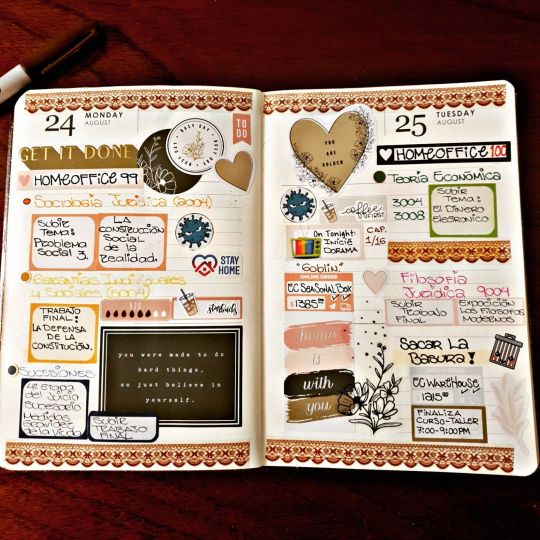 24 MONDAY
AUGUST
TO
DO
GET IT DONE
HOMEOFFICE 99
Sociología Jurídica (2004)
Subir
Tema:
Problema
Social 3.
LA
CONSTRUCCIÓN
Social de la
Realidad.
STAY
HOME
Garantías Individuales
y Sociales
TRABAJO
FINAL:
LA DEFENSA
DE LA
CONSTITUCIÓN.
H2O
starbucks
you were made to do
hard things,
so just believe in
yourself.
SUCESIONES
4ª Etapa
del Juicio
Sucesorio
Medidas
SUBIR
TRABAJO
FINAL
25 TUESDAY
AUGUST
YOU
ARE
GOLDEN
HOMEOFFICE 100
Teoría Económica
3004
3008
SUBIR
Tema:
El Dinero
Electrónico
coffee
FIRST
On Tonight:
INICIÉ
DORAMA
CAP.
1/16
"Goblin."
ONLINE ORDER
EC SEASONAL BOX
$1385
Filosofía
Jurídica 9004
SUBIR
Trabajo
Final
EXPOSICIÓN
Los Filósofos
Modernos
home
is
with
you
SACAR LA
BASURA!
EC WAREHOUSE
FINALIZA
CURSO-TALLER
7:00-9:00PM